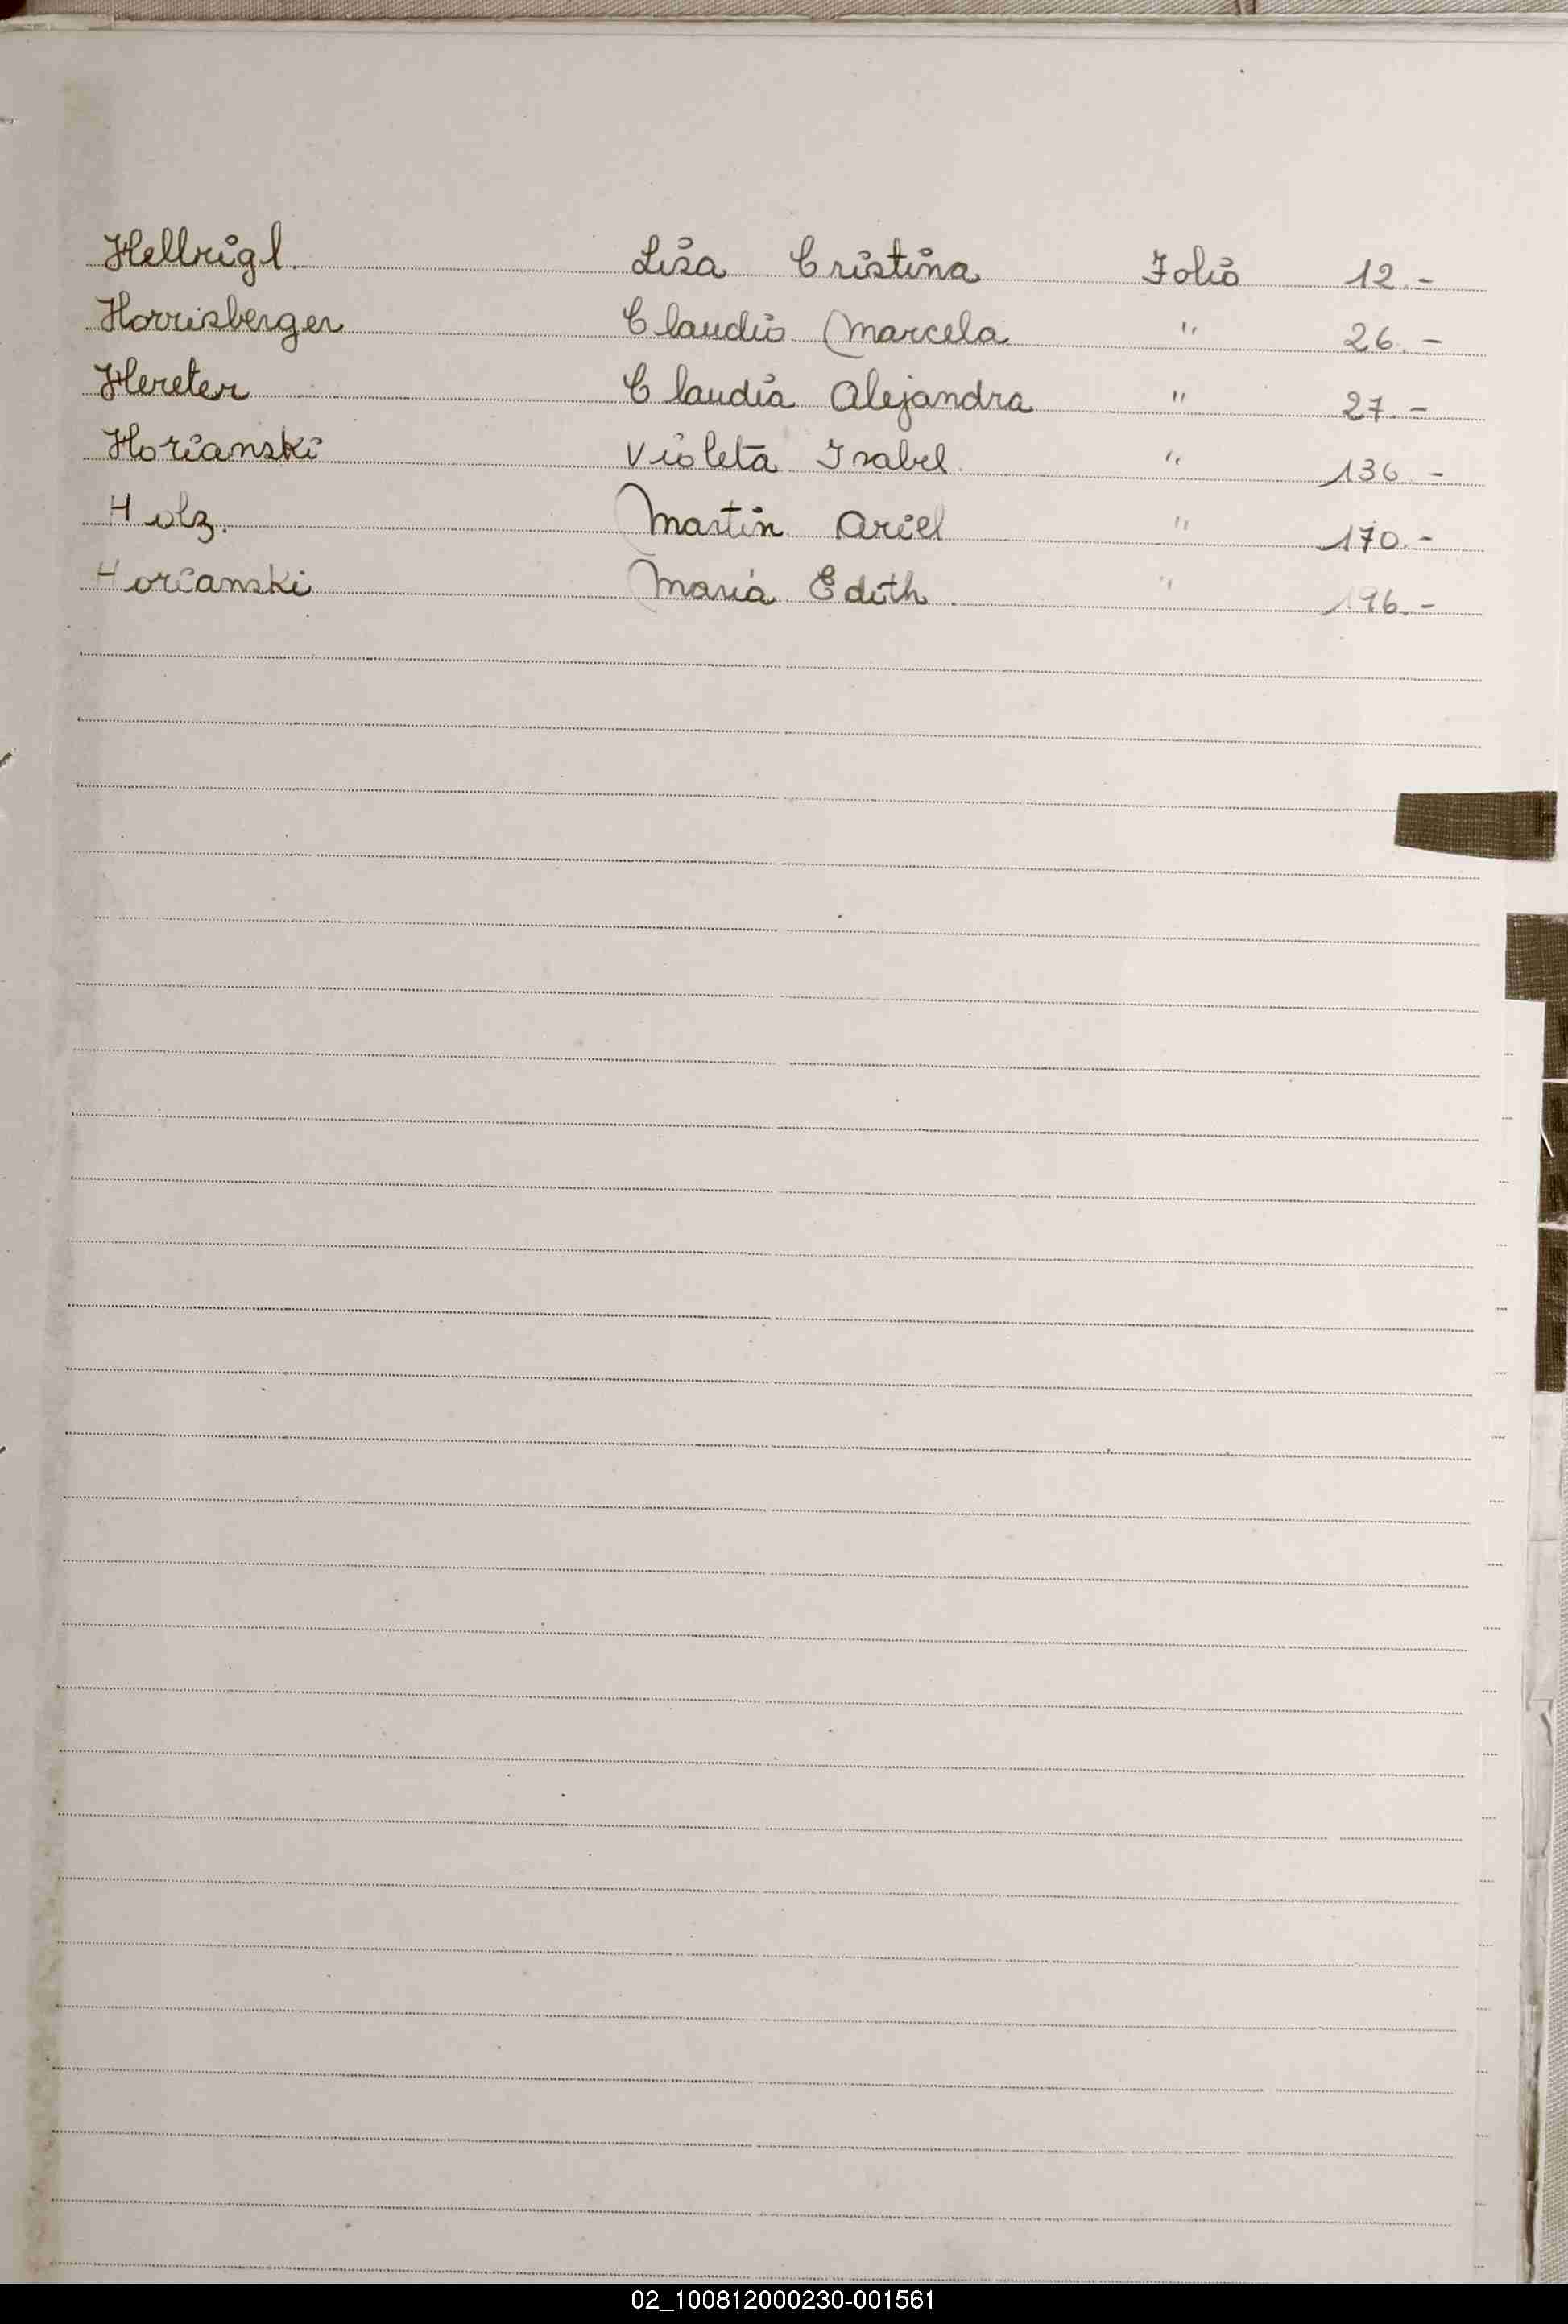 Hellrigl. Lisa Cristina Folio 12.-
Horrisberger Claudio Marcela " 26.-
Hereter Claudia Alejandra " 27.-
Horianski Violeta Isabel " 136.-
Holz. Martin Ariel " 170.-
Horianski María Edith. " 196.-
02_100812000230-001561